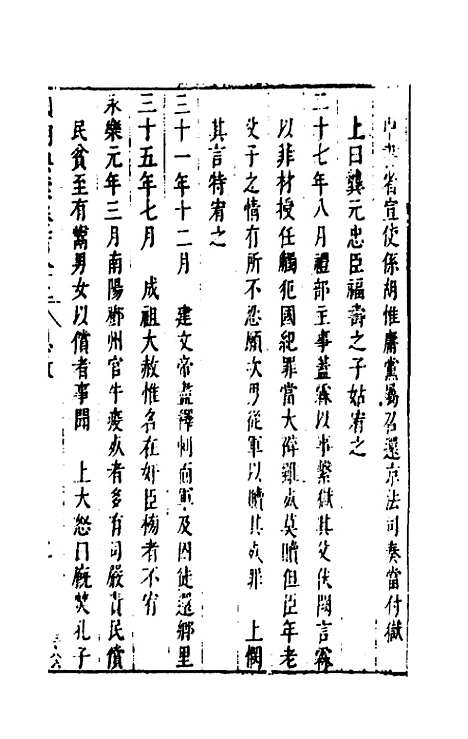 中書省宣使係胡惟庸黨舄名還京法司奏當付獄
上曰龔元忠臣福壽之子姑宥之
二十七年八月禮部主事蓋霖以事繫獄其父伏闕言霖
以菲材授任觸犯國紀罪當大辟雖死莫贖但臣年老
父子之情有所不忍願次男從軍以贖其死罪 上憫
其言特宥之
三十一年十二月 建文帝盡釋刺面軍及囚徒還鄉里
三十五年七月 成祖大赦惟名在奸臣榜者不宥
永樂元年三月南陽鄧州官牛疫死者多有司嚴責民償
民貧至有鬻男女以償者事聞 上大怒曰廐焚孔子